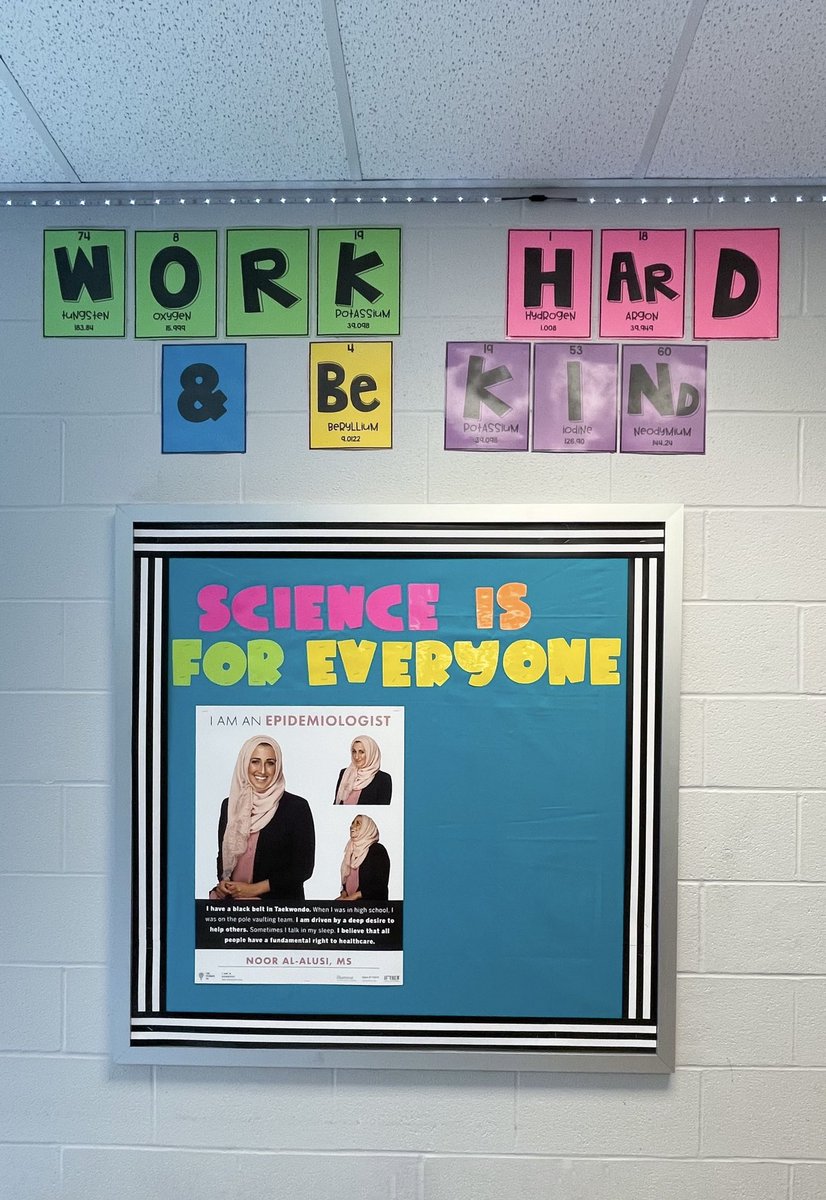 74 8 19 1 18
W O R K H AR D
TUNGSTEN OXYGEN POTASSIUM HYDROGEN ARGON
183.84 15.999 39.098 1.008 39.949
4 19 53 60
& Be K I ND
BERYLLIUM POTASSIUM IODINE NEODYMIUM
9.0122 39.098 126.90 144.24
SCIENCE IS
FOR EVERYONE
I AM AN EPIDEMIOLOGIST
I have a black belt in Taekwondo. When I was in high school, I
was on the pole vaulting team. I am driven by a deep desire to
help others. Sometimes I talk in my sleep. I believe that all
people have a fundamental right to healthcare.
NOOR AL-ALUSI, MS